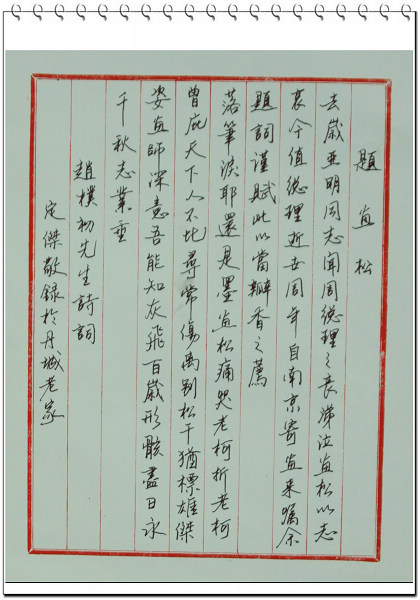 題畫松
去歲亞明同志聞周總理之喪涕泣畫松以志
哀今值總理逝世周年自南京寄畫来囑余
題詞謹賦此以當瓣香之薦
落筆淚耶還是墨畫松痛哭老柯折老柯
曾庇天下人不比尋常傷离别松干猶標雄傑
姿畫師深意吾能知灰飛百歲形骸盡日永
千秋志業垂
趙樸初先生詩詞
定傑敬録於丹城老家